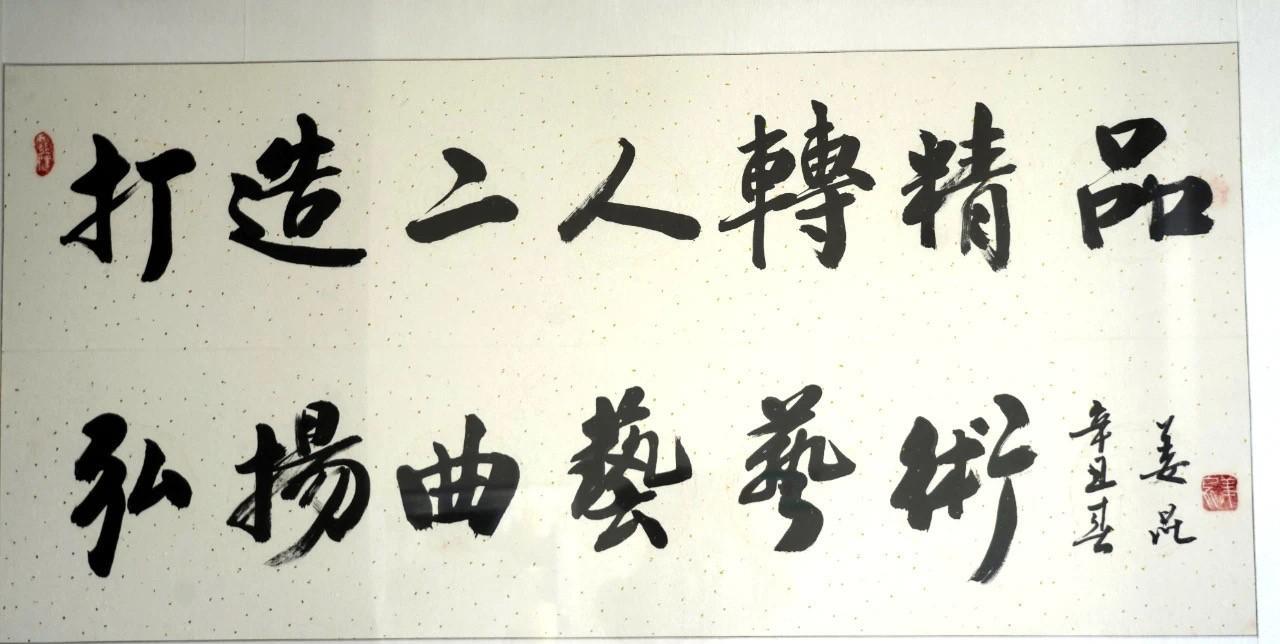 打造二人轉精品
弘揚曲藝藝術
辛丑春
姜昆